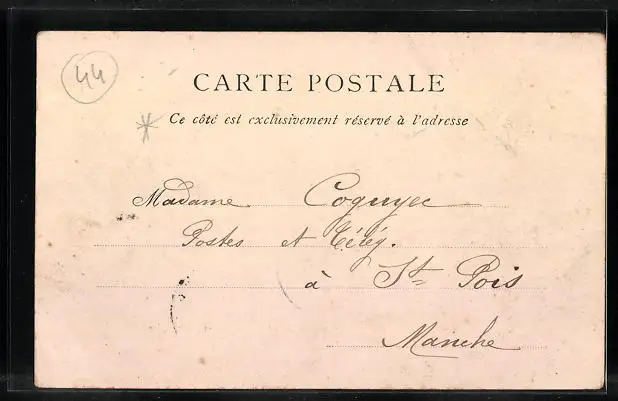 44
CARTE POSTALE
* Ce côté est exclusivement réservé à l'adresse
Madame Coguyec
Postes et Télég.
à St Pois
Manche